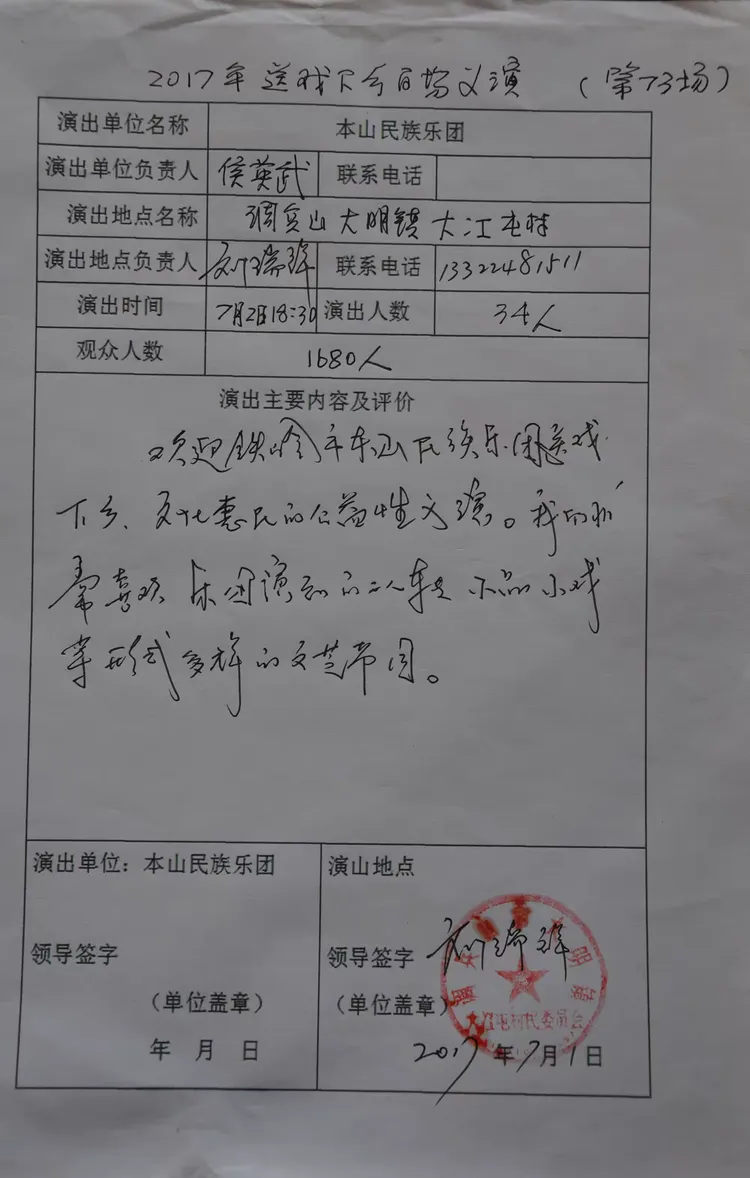 2017年送戏下乡百场义演 (第73场)
演出单位名称 本山民族乐团
演出单位负责人 侯英武 联系电话
演出地点名称 调兵山大明镇大江屯村
演出地点负责人 刘瑞祥 联系电话 13322481511
演出时间 7月2日18:30 演出人数 34人
观众人数 1680人
演出主要内容及评价
欢迎铁岭市本山民族乐团送戏
下乡、文化惠民的公益性义演。我们非
常喜欢乐团演动的二人转 小品小戏
等形式多样的文艺节目。
演出单位：本山民族乐团 演山地点
领导签字 领导签字 刘瑞祥
（单位盖章） （单位盖章）
年 月 日 2017年7月1日
村民委员会